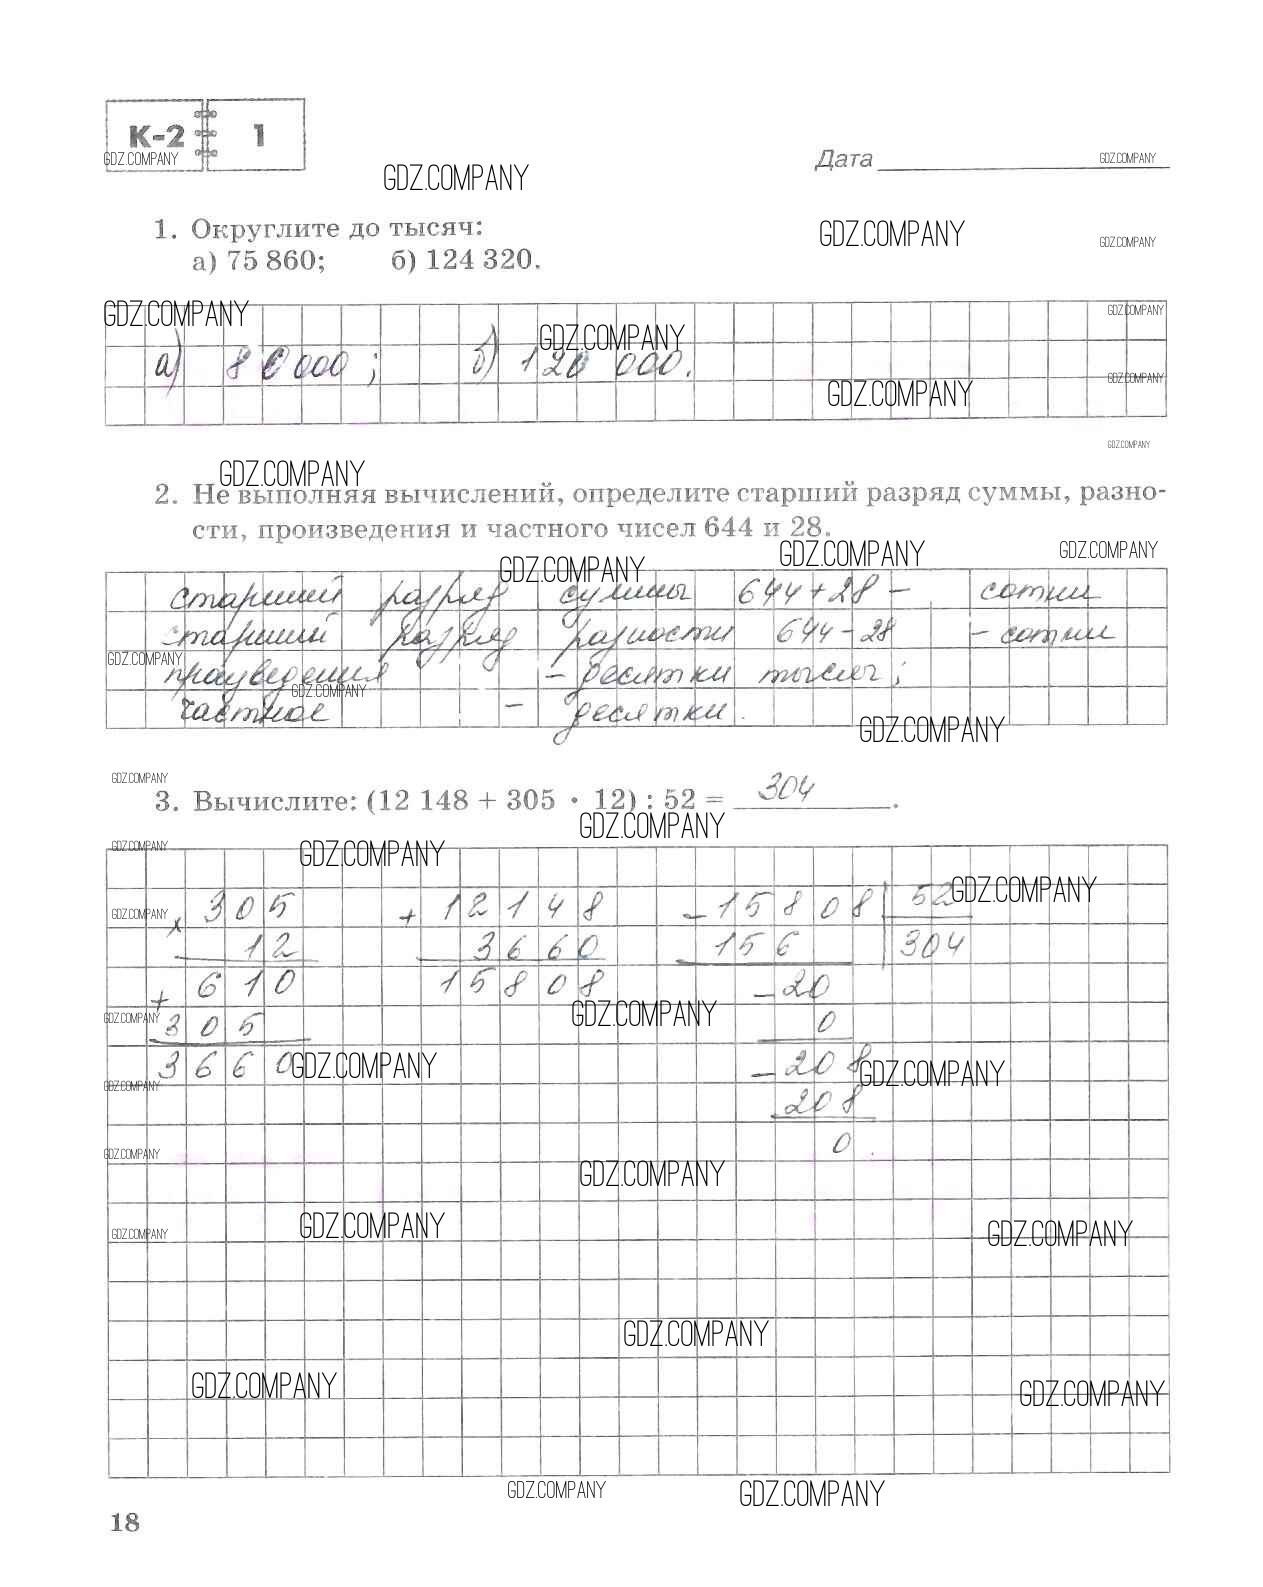 К-2 1
GDZ.COMPANY
Дата GDZ.COMPANY
GDZ.COMPANY
1. Округлите до тысяч:
GDZ.COMPANY GDZ.COMPANY
а) 75 860; б) 124 320.
GDZ.COMPANY GDZ.COMPANY
GDZ.COMPANY
а) 80 000; б) 120 000.
GDZ.COMPANY GDZ.COMPANY
GDZ.COMPANY
GDZ.COMPANY
2. Не выполняя вычислений, определите старший разряд суммы, разно-
сти, произведения и частного чисел 644 и 28.
GDZ.COMPANY GDZ.COMPANY GDZ.COMPANY
старший разряд суммы 644+28 - сотни
старший разряд разности 644-28 - сотни
GDZ.COMPANY
произведения - десятки тысяч;
GDZ.COMPANY
частное - десятки.
GDZ.COMPANY
GDZ.COMPANY
3. Вычислите: (12 148 + 305 · 12) : 52 = 304.
GDZ.COMPANY
GDZ.COMPANY GDZ.COMPANY
GDZ.COMPANY
× 305 + 12148 - 15808 52
GDZ.COMPANY
12 3660 156 304
+ 610 15808 - 20
GDZ.COMPANY GDZ.COMPANY
305 0
3660 - 208
GDZ.COMPANY GDZ.COMPANY
GDZ.COMPANY
208
0.
GDZ.COMPANY GDZ.COMPANY
GDZ.COMPANY GDZ.COMPANY GDZ.COMPANY
GDZ.COMPANY
GDZ.COMPANY GDZ.COMPANY
GDZ.COMPANY GDZ.COMPANY
18